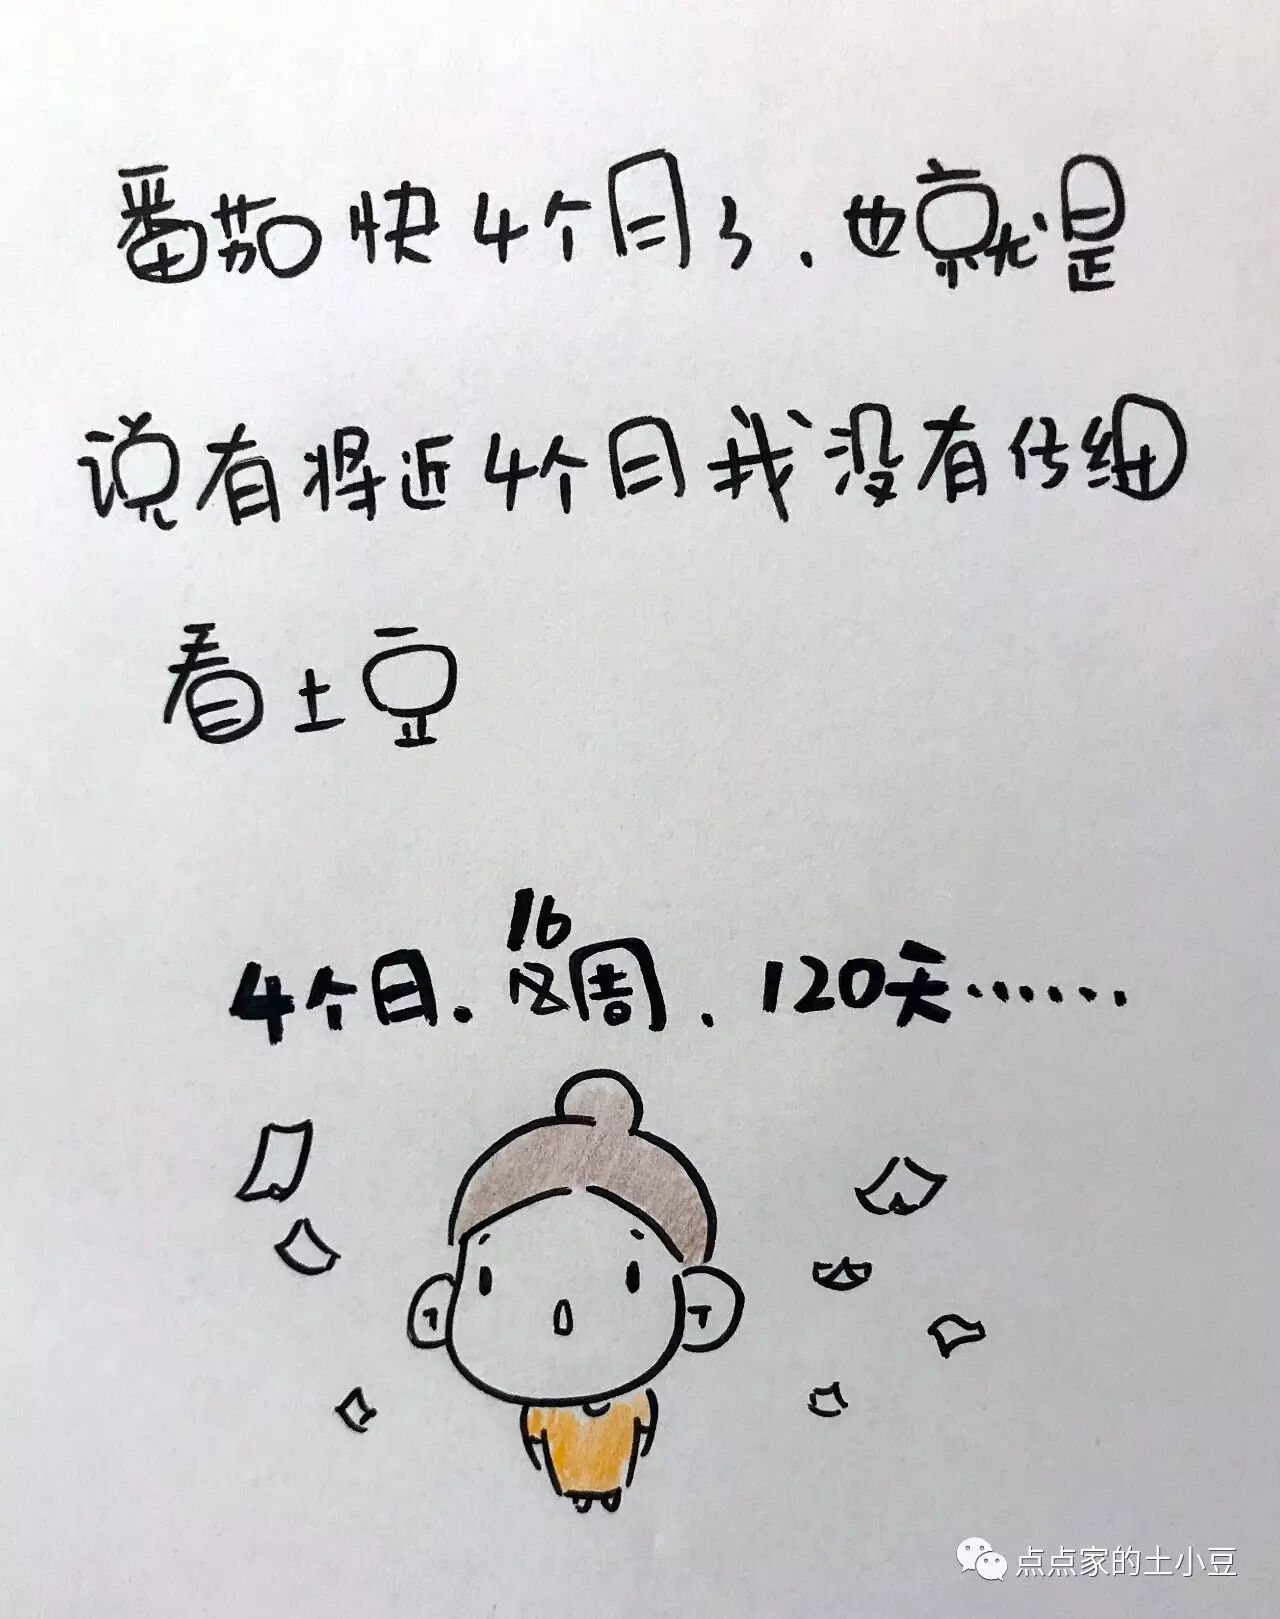 番茄快4个月了.也就是
说有将近4个月我没有仔细
看土豆
16
4个月.周.120天……
点点家的土小豆